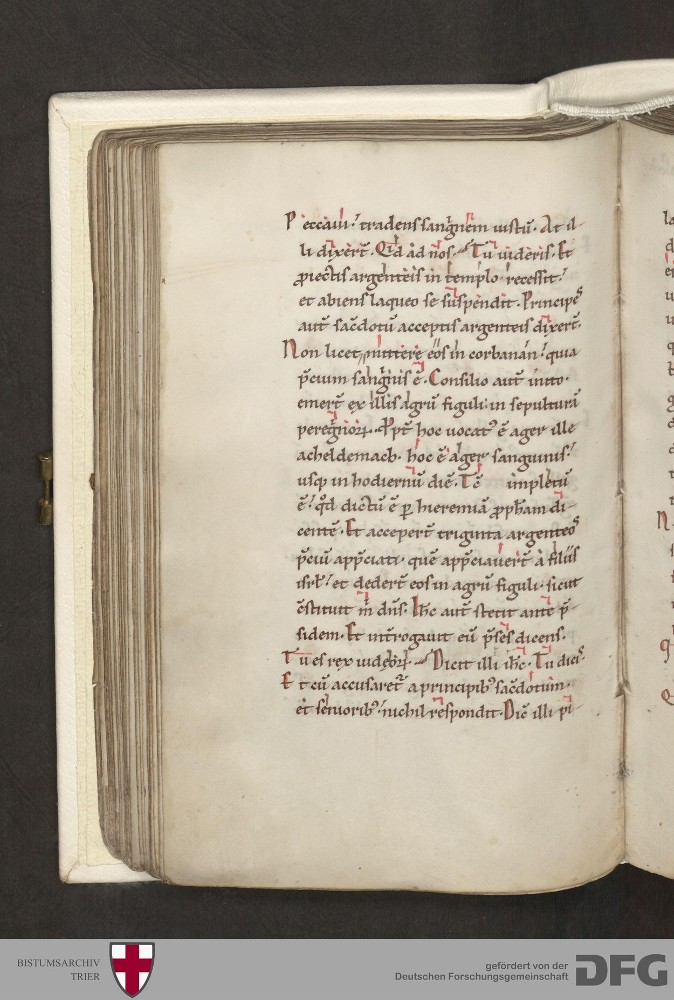 Peccaui. tradens sanguinem iustū. At il-
li dixer̄t. Qid ad nos. Tu uideris. Et
ꝓiectis argenteis in templo recessit.
et abiens laqueo se suspendit. Principes
aut̄ sac̄dotū acceptis argenteis dixer̄t.
Non licet mittere eos in corbanan. quia
p̄cium sanguinis ē. Consilio aut̄ inito.
emer̄t ex illis agrū figuli. in sepulturā
peregrinoꝝ. Ꝓpt̄ hoc uocatꝰ ē ager ille
acheldemach. hoc ē ager sanguinis.
usqꝫ in hodiernū diē. Tc̄ impletū
ē. qđ dictū ē ꝑ hieremiā ꝓph̄am di-
centē. Et acceper̄t triginta argenteos
p̄ciū app̄ciati. quē app̄ciauer̄t a filiis
isrl̄. et deder̄t eos in agrū figuli. sicut
c̄stituit m̄ dn̄s. Ih̄c aut̄ stetit ante p̄-
sidem. Et int̄rogauit eū p̄ses dicens.
Tu es rex iudeoꝝ. Dicit illi ih̄c. Tu dicis.
Et cū accusaret̄ a principibꝰ sac̄dotum.
et senioribꝰ. nichil respondit. Dic̄ illi pi-
BISTUMSARCHIV
TRIER
gefördert von der
Deutschen Forschungsgemeinschaft
DFG